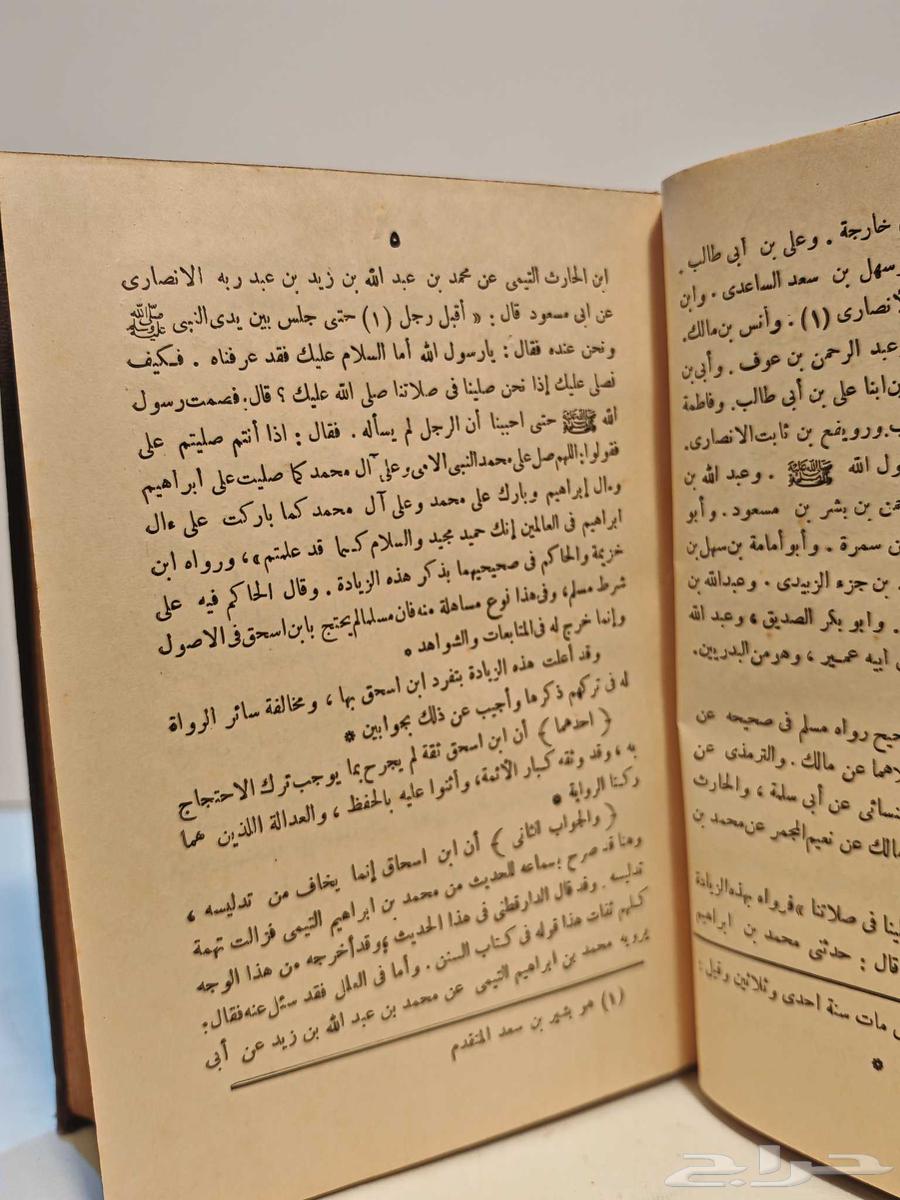 خارجة . وعلى بن أبى طالب .
وسهل بن سعد الساعدى . وابن
الانصارى (١) . وأنس بن مالك .
وعبد الرحمن بن عوف . وأبى بن
ابنا على بن أبى طالب . وفاطمة
ورويفع بن ثابت الانصارى .
الله ﷺ . وعبد الله بن
بن بشر بن مسعود . وأبو
بن سمرة . وأبو أمامة بن سهل بن
بن جزء الزبيدى . وعبد الله بن
. وابو بكر الصديق ، وعبد الله
أبيه عمير ، وهو من البدريين .
رواه مسلم فى صحيحه عن
عن مالك . والترمذى عن
عن أبى سلمة ، والحارث
مالك عن نعيم المجمر عن محمد بن
فى صلاتنا » فرواه بهذه الزيادة
قال : حدثنى محمد بن ابراهيم
مات سنة احدى وثلاثين وقيل :
٥
ابن الحارث التيمى عن محمد بن عبد الله بن زيد بن عبد ربه الانصارى
عن ابى مسعود قال : « أقبل رجل (١) حتى جلس بين يدى النبى ﷺ
ونحن عنده فقال : يارسول الله أما السلام عليك فقد عرفناه . فكيف
نصلى عليك إذا نحن صلينا فى صلاتنا صلى الله عليك ؟ قال : فصمت رسول
الله ﷺ حتى احببنا أن الرجل لم يسأله . فقال : اذا أنتم صليتم على
فقولوا : اللهم صل على محمد النبى الامى وعلى آل محمد كما صليت على ابراهيم
وءال إبراهيم وبارك على محمد وعلى آل محمد كما باركت على ءال
ابراهيم فى العالمين إنك حميد مجيد والسلام كما قد علمتم » ، ورواه ابن
خزيمة والحاكم فى صحيحيهما بذكر هذه الزيادة . وقال الحاكم فيه على
شرط مسلم ، وفى هذا نوع مساهلة منه فان مسلما لم يحتج بابن اسحق فى الاصول
وإنما خرج له فى المتابعات والشواهد *
وقد أعلت هذه الزيادة بتفرد ابن اسحق بها ، ومخالفة سائر الرواة
له فى تركهم ذكرها وأجيب عن ذلك بجوابين *
( احدهما ) أن ابن اسحق ثقة لم يجرح بما يوجب ترك الاحتجاج
به ، وقد وثقه كبار الأئمة ، وأثنوا عليه بالحفظ ، والعدالة اللذين هما
ركنا الرواية *
( والجواب الثانى ) أن ابن اسحاق إنما يخاف من تدليسه ،
وهنا قد صرح بسماعه للحديث من محمد بن ابراهيم التيمى فزالت تهمة
تدليسه . وقد قال الدارقطنى فى هذا الحديث وقد أخرجه من هذا الوجه
كلهم ثقات هذا قوله فى كتاب السنن . وأما فى العلل فقد سئل عنه فقال :
يرويه محمد بن ابراهيم التيمى عن محمد بن عبد الله بن زيد عن أبى
(١) هو بشير بن سعد المتقدم
حراج